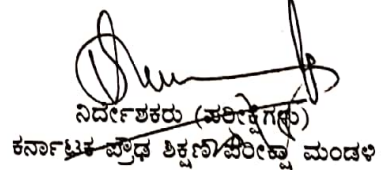 ನಿರ್ದೇಶಕರು (ಪರೀಕ್ಷೆಗಳು)
ಕರ್ನಾಟಕ ಪ್ರೌಢ ಶಿಕ್ಷಣ ಪರೀಕ್ಷಾ ಮಂಡಳಿ